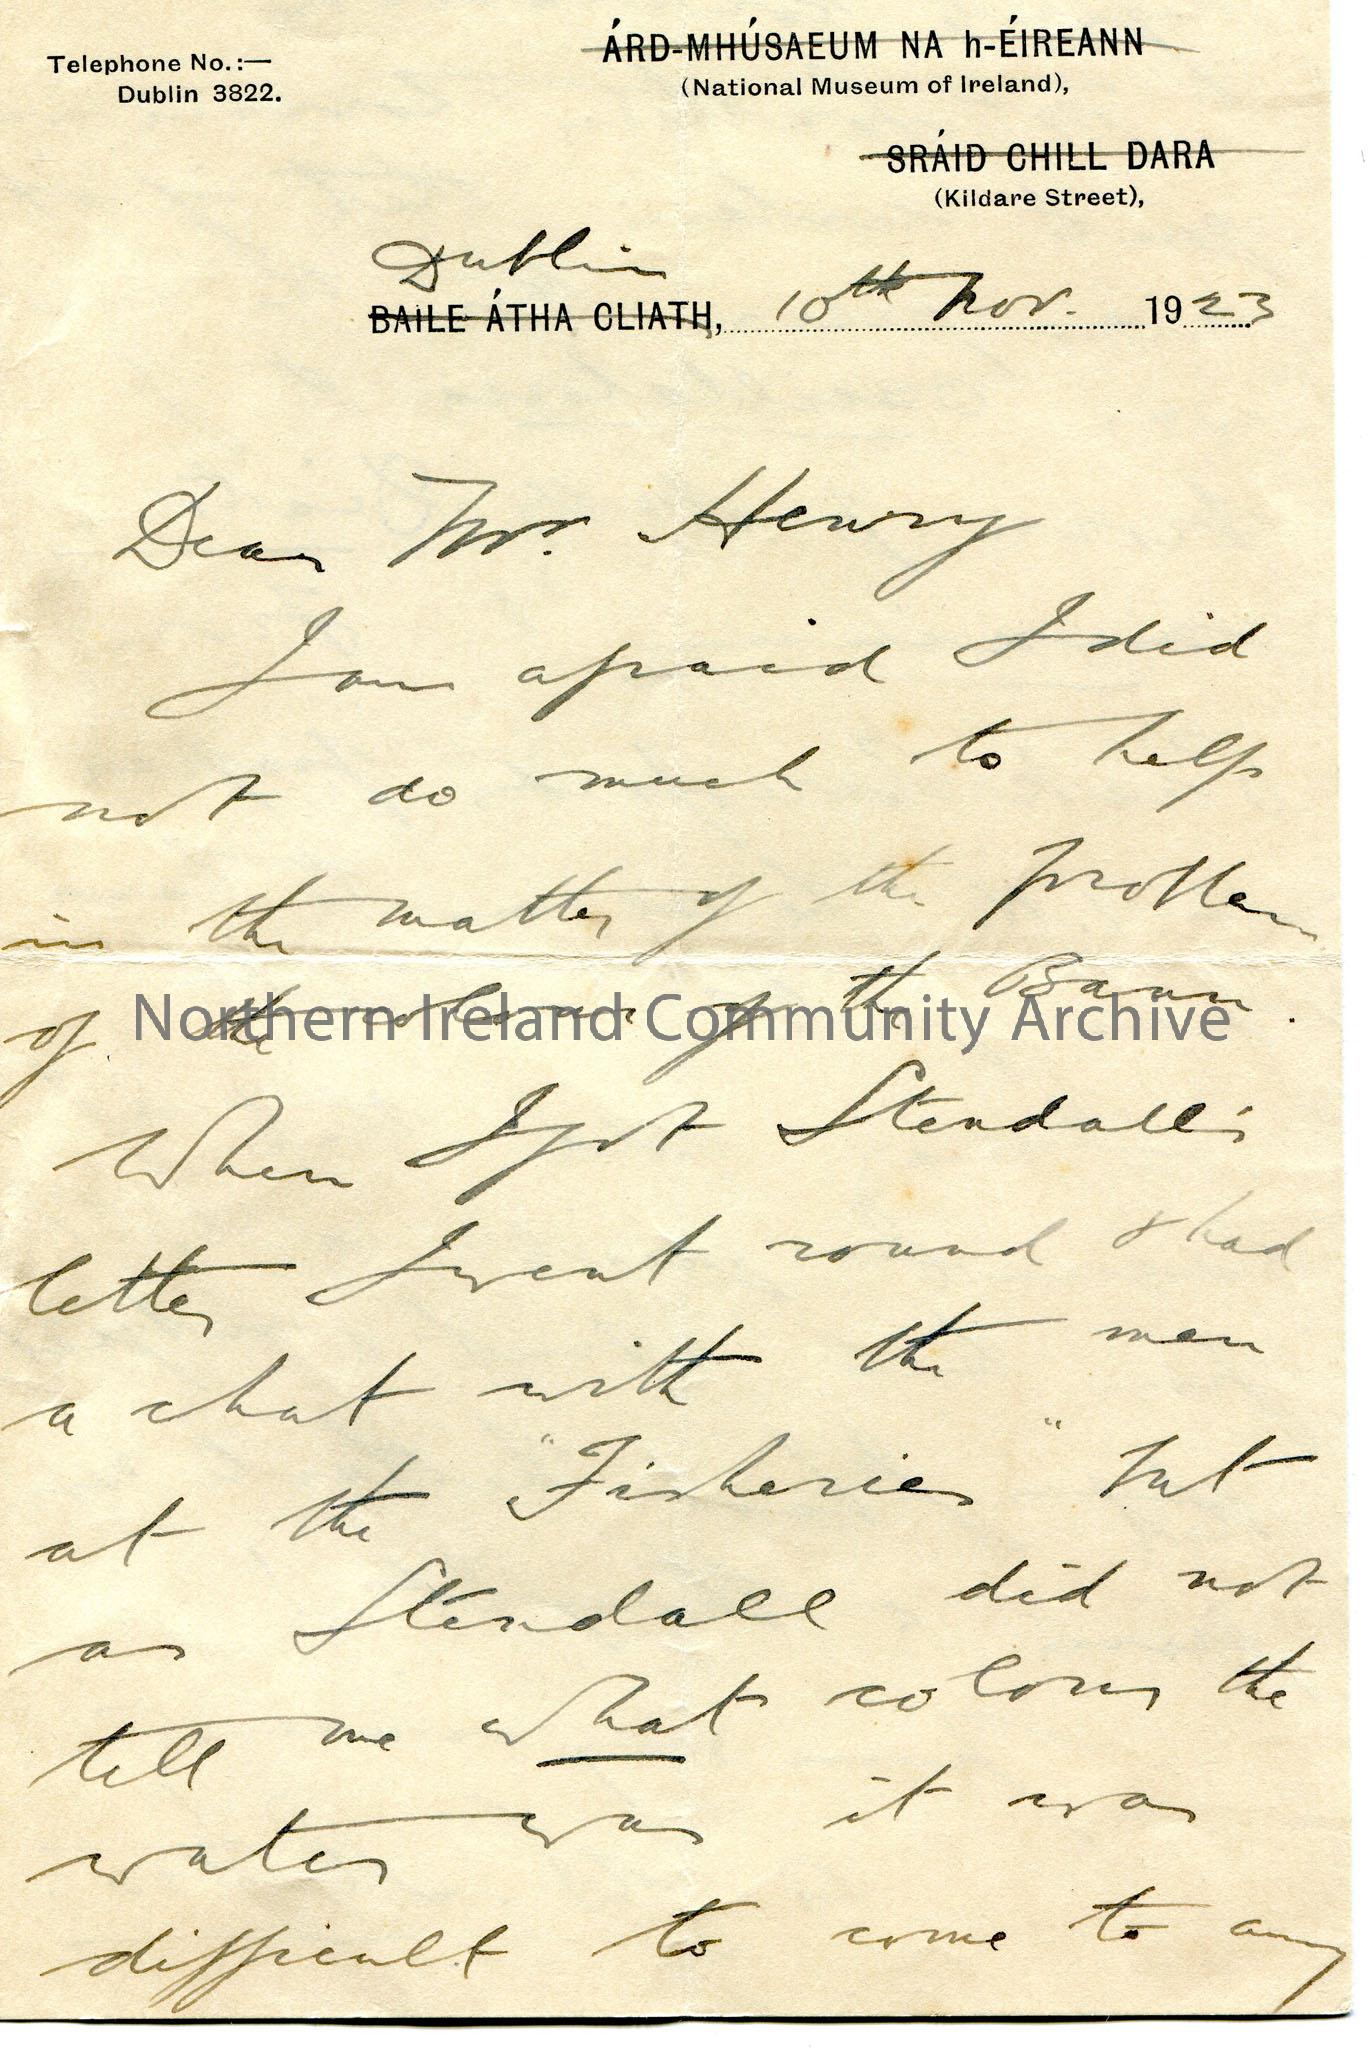 Telephone No.:—
Dublin 3822.
ÁRD-MHÚSAEUM NA h-ÉIREANN
(National Museum of Ireland),
SRÁID CHILL DARA
(Kildare Street),
Dublin
BAILE ÁTHA CLIATH, 10th Nov. 1923
Dear Mr. Henry
I am afraid I did
not do much to help
in the matter of the problem
of the colour of the Bann.
Northern Ireland Community Archive
When I got Stendall's
letter I went round & had
a chat with the men
at the "Fisheries" but
as Stendall did not
tell me what colour the
water was it was
difficult to come to any